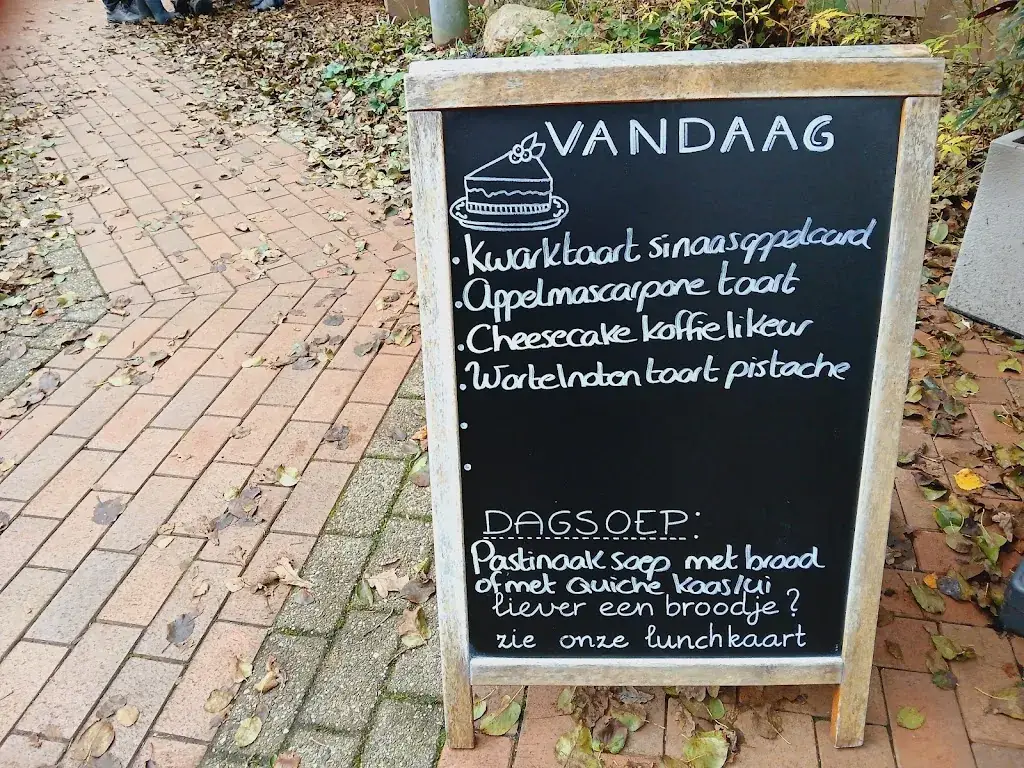 VANDAAG
• Kwarktaart sinaasappelcurd
• Appelmascarpone taart
• Cheesecake koffielikeur
• Wortelnoten taart pistache
•
•
DAGSOEP:
Pastinaak soep met brood
of met Quiche kaas/ui
liever een broodje?
zie onze lunchkaart